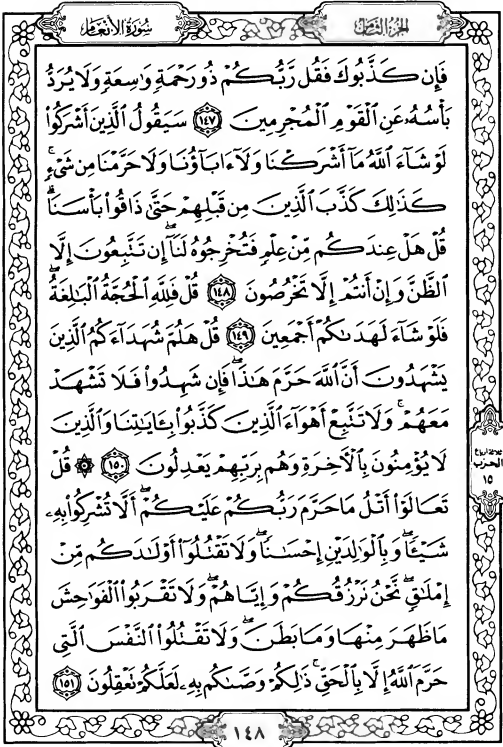 سُورَةُ الأَنْعَامِ
الجُزْءُ الثَّامِنُ
فَإِن كَذَّبُوكَ فَقُل رَّبُّكُمْ ذُو رَحْمَةٍ وَاسِعَةٍ وَلَا يُرَدُّ
بَأْسُهُۥ عَنِ ٱلْقَوْمِ ٱلْمُجْرِمِينَ ١٤٧ سَيَقُولُ ٱلَّذِينَ أَشْرَكُوا۟
لَوْ شَآءَ ٱللَّهُ مَآ أَشْرَكْنَا وَلَآ ءَابَآؤُنَا وَلَا حَرَّمْنَا مِن شَىْءٍ ۚ
كَذَٰلِكَ كَذَّبَ ٱلَّذِينَ مِن قَبْلِهِمْ حَتَّىٰ ذَاقُوا۟ بَأْسَنَا ۗ
قُلْ هَلْ عِندَكُم مِّنْ عِلْمٍ فَتُخْرِجُوهُ لَنَآ ۖ إِن تَتَّبِعُونَ إِلَّا
ٱلظَّنَّ وَإِنْ أَنتُمْ إِلَّا تَخْرُصُونَ ١٤٨ قُلْ فَلِلَّهِ ٱلْحُجَّةُ ٱلْبَٰلِغَةُ ۖ
فَلَوْ شَآءَ لَهَدَىٰكُمْ أَجْمَعِينَ ١٤٩ قُلْ هَلُمَّ شُهَدَآءَكُمُ ٱلَّذِينَ
يَشْهَدُونَ أَنَّ ٱللَّهَ حَرَّمَ هَٰذَا ۖ فَإِن شَهِدُوا۟ فَلَا تَشْهَدْ
مَعَهُمْ ۚ وَلَا تَتَّبِعْ أَهْوَآءَ ٱلَّذِينَ كَذَّبُوا۟ بِـَٔايَٰتِنَا وَٱلَّذِينَ
لَا يُؤْمِنُونَ بِٱلْـَٔاخِرَةِ وَهُم بِرَبِّهِمْ يَعْدِلُونَ ١٥٠ ۞ قُلْ
تَعَالَوْا۟ أَتْلُ مَا حَرَّمَ رَبُّكُمْ عَلَيْكُمْ ۖ أَلَّا تُشْرِكُوا۟ بِهِۦ
شَيْـًٔا ۖ وَبِٱلْوَٰلِدَيْنِ إِحْسَٰنًا ۖ وَلَا تَقْتُلُوٓا۟ أَوْلَٰدَكُم مِّنْ
إِمْلَٰقٍ ۖ نَّحْنُ نَرْزُقُكُمْ وَإِيَّاهُمْ ۖ وَلَا تَقْرَبُوا۟ ٱلْفَوَٰحِشَ
مَا ظَهَرَ مِنْهَا وَمَا بَطَنَ ۖ وَلَا تَقْتُلُوا۟ ٱلنَّفْسَ ٱلَّتِى
حَرَّمَ ٱللَّهُ إِلَّا بِٱلْحَقِّ ۚ ذَٰلِكُمْ وَصَّىٰكُم بِهِۦ لَعَلَّكُمْ تَعْقِلُونَ ١٥١
ثلاثة أرباع
الحزب
١٥
١٤٨